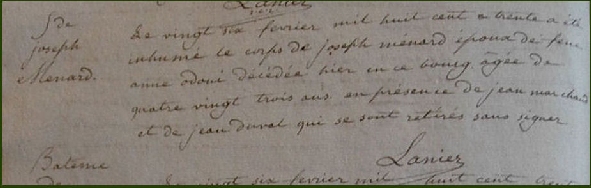 Lanier
Sde
joseph
Ménard.
Le vingt six fevrier mil huit cent & trente a été
inhumé le corps de joseph ménard epoux de feue
anne odoui décédée hier en ce bourg, agée de
quatre vingt trois ans en présence de jean marchand
et de jean duval qui se sont retirés sans signer
Lanier
Bateme
vingt six fevrier mil huit cent trente